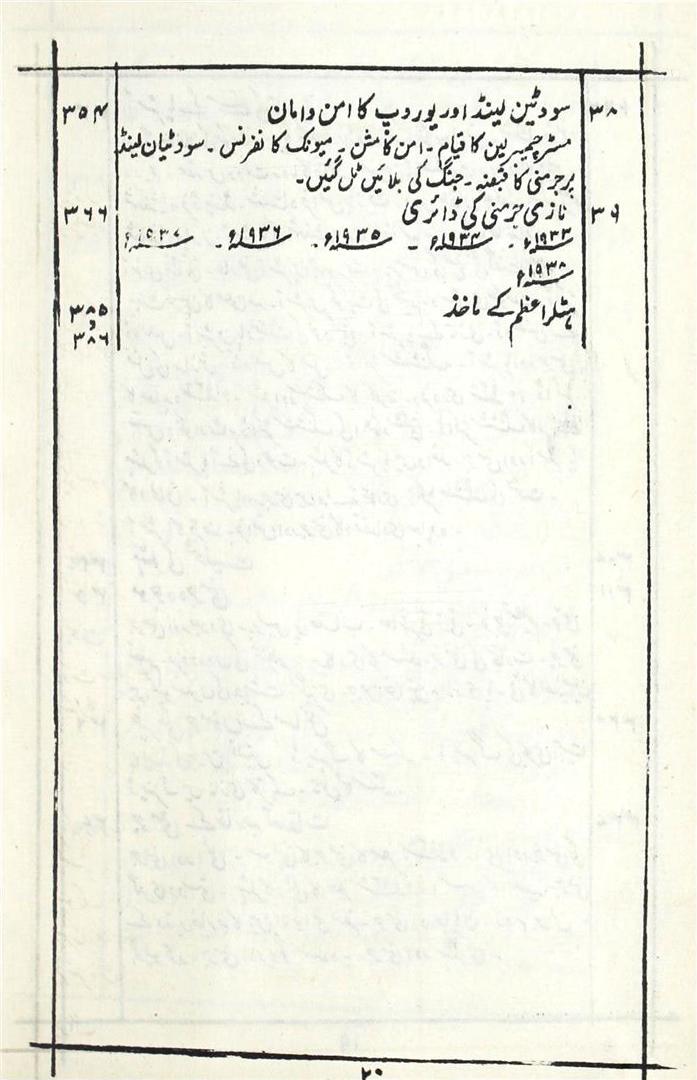 ۳۸ سوڈٹین لینڈ اور یوروپ کا امن و امان ۳۵۴
مسٹر چیمبرلین کا قیام۔ امن کا مشن ۔ میونک کانفرنس ۔ سوڈٹیان لینڈ
پر جرمنی کا قبضہ ۔ جنگ کی بلائیں ٹل گئیں۔
۳۹ نازی جرمنی کی ڈائری ۳۶۶
۱۹۳۳ء ۔ ۱۹۳۴ء ۔ ۱۹۳۵ء ۔ ۱۹۳۶ء ۔ ۱۹۳۷ء
۱۹۳۸ء
ہٹلر اعظم کے ماخذ ۳۸۵
و
۳۸۶
۲۰